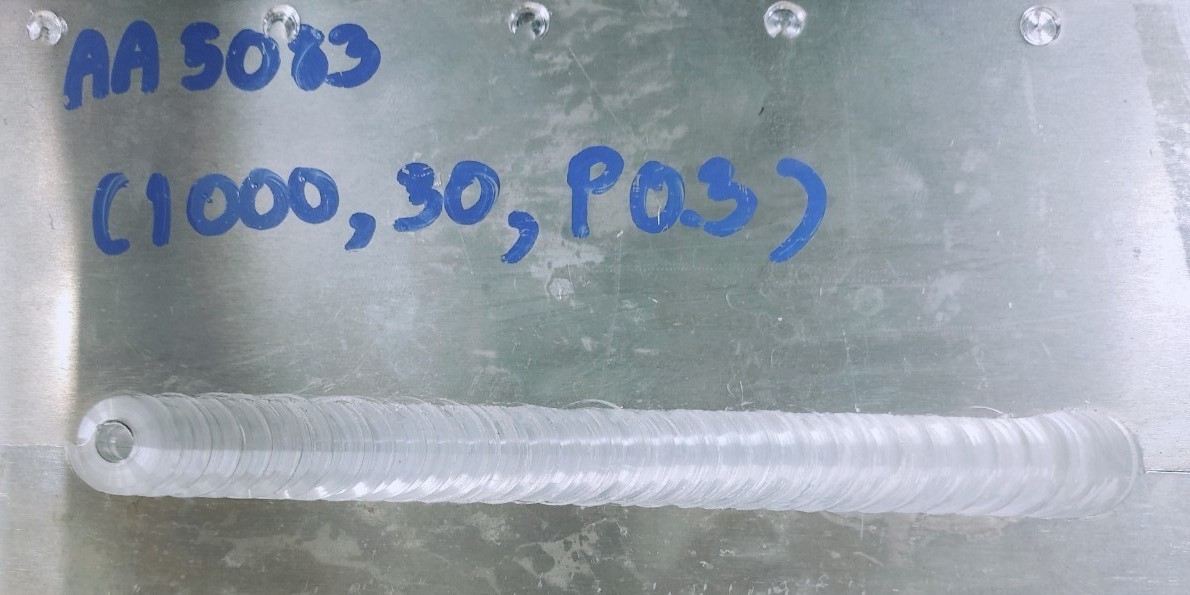 AA 5083
(1000, 30, P0.3)